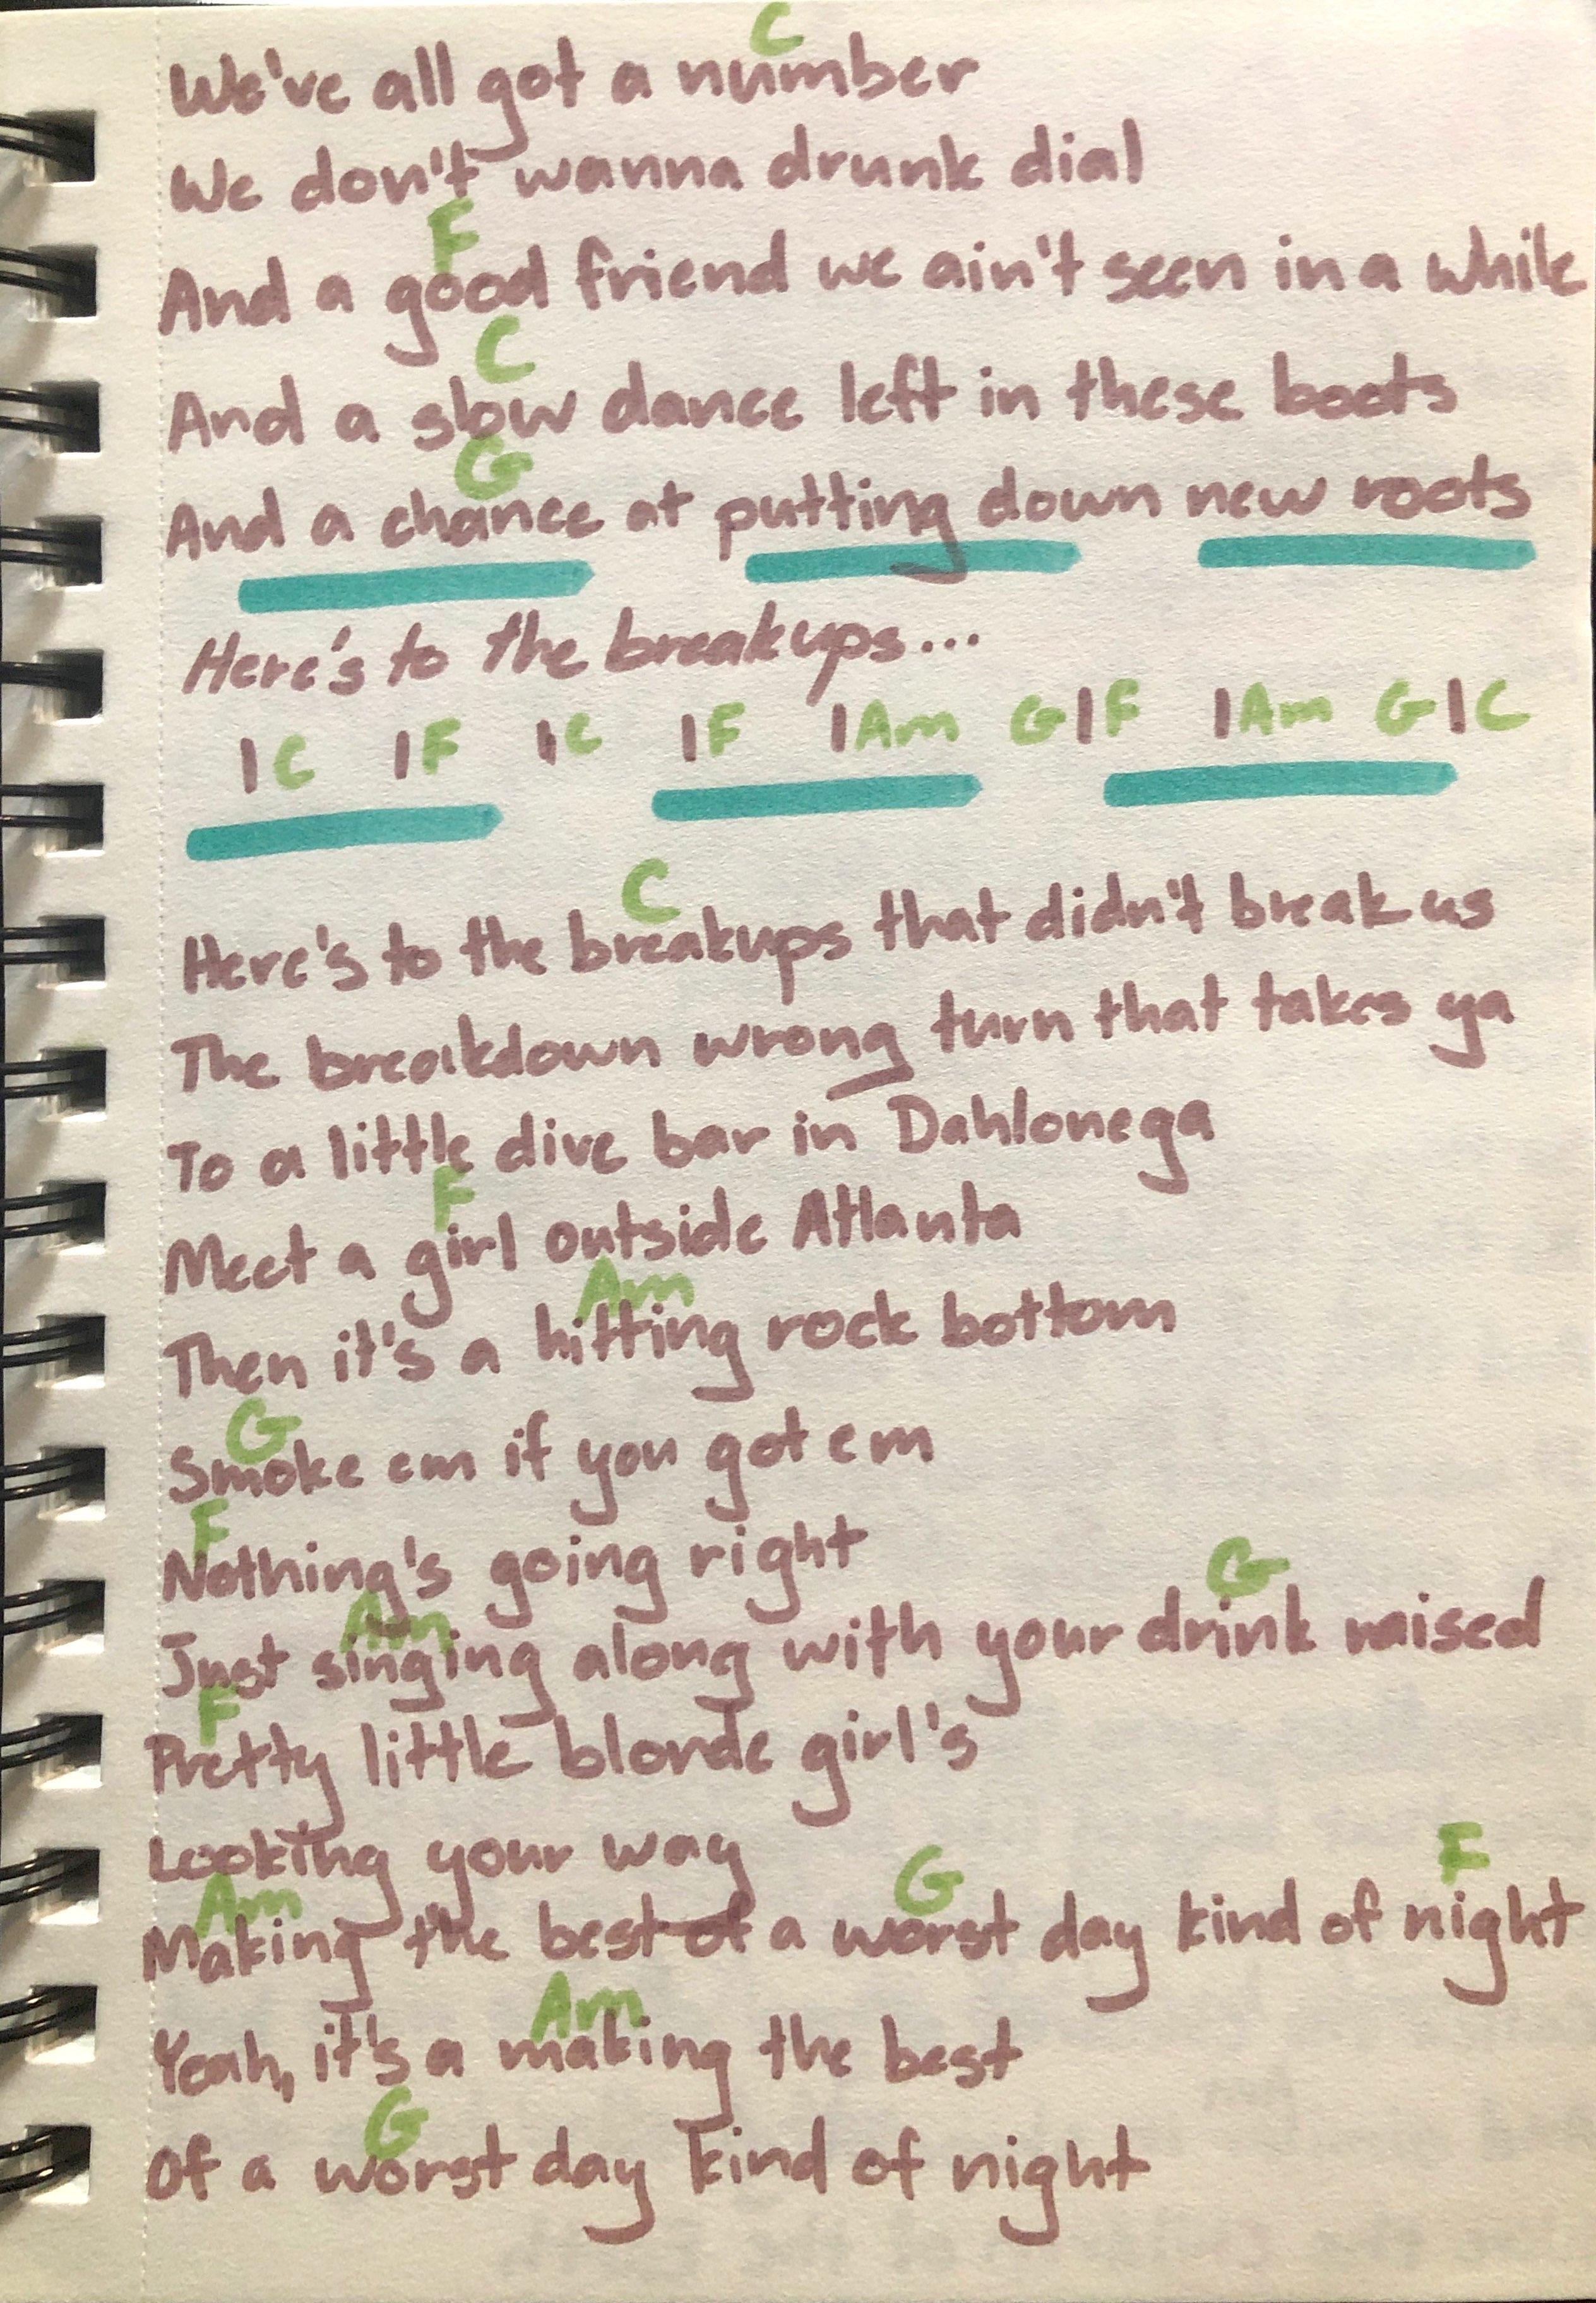 C
We've all got a number
We don't wanna drunk dial
F
And a good friend we ain't seen in a while
C
And a slow dance left in these boots
G
And a chance at putting down new roots
Here's to the breakups...
|C |F |C |F |Am G|F |Am G|C
C
Here's to the breakups that didn't break us
The breakdown wrong turn that takes ya
To a little dive bar in Dahlonega
F
Meet a girl outside Atlanta
Am
Then it's a hitting rock bottom
G
Smoke em if you got em
F
Nothing's going right
Am G
Just singing along with your drink raised
F
Pretty little blonde girl's
Looking your way
Am G F
Making the best of a worst day kind of night
Am
Yeah, it's a making the best
G
Of a worst day kind of night